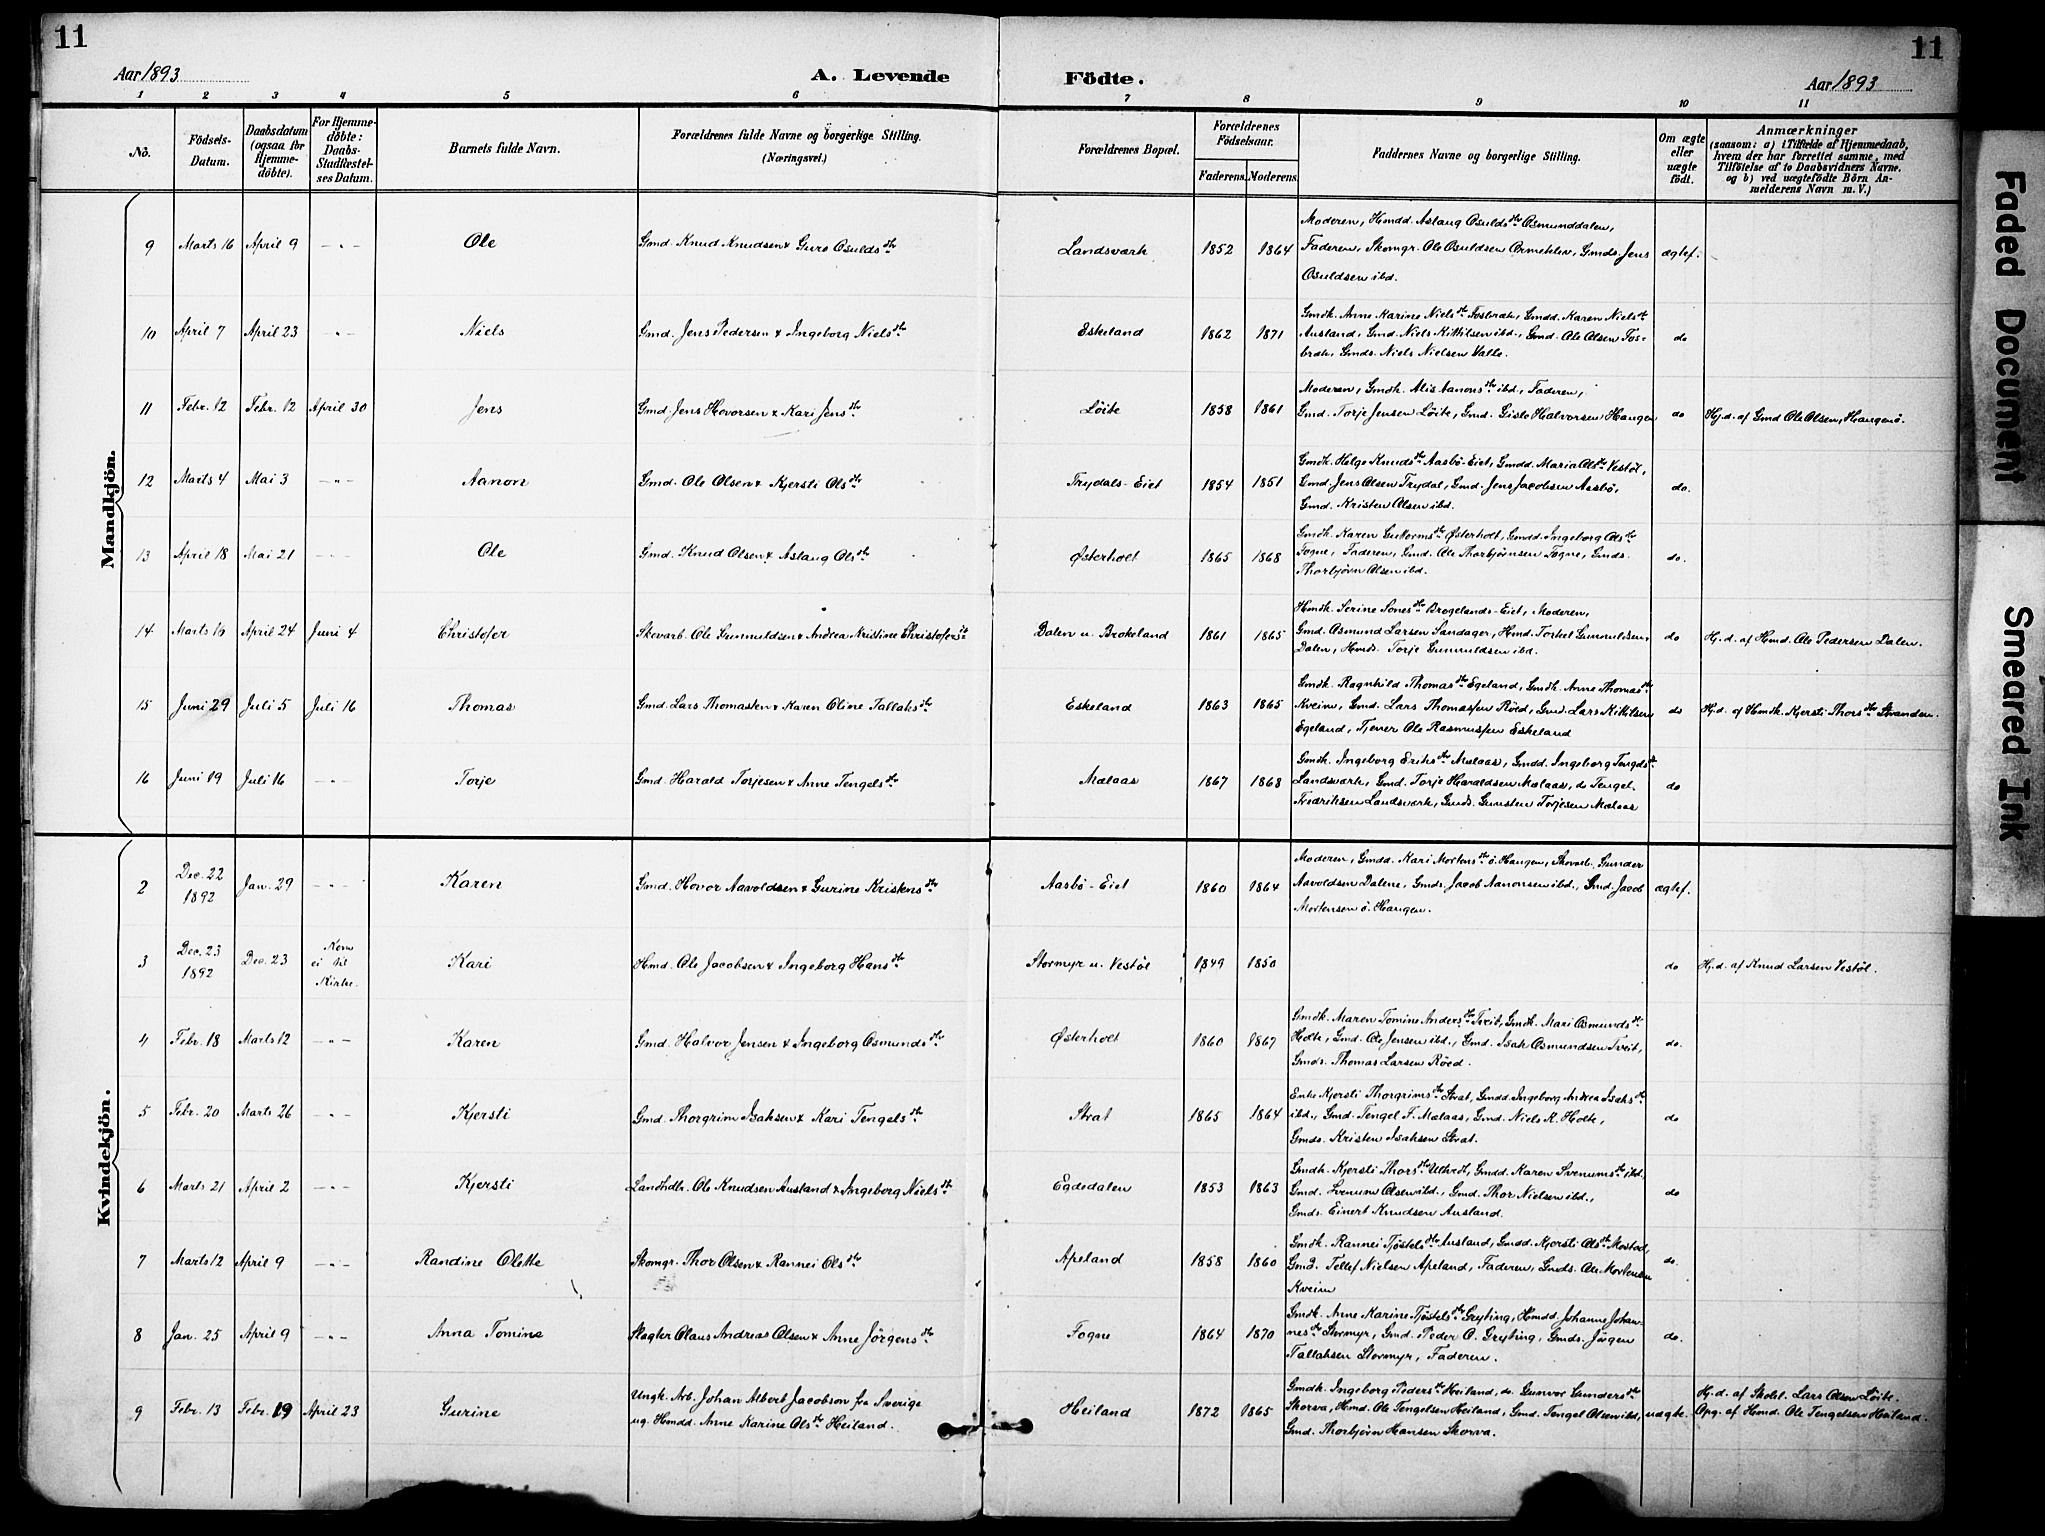 11
11
Aar 1893
A. Levende
Födte.
Aar 1893
1 2 3 4 5 6 7 8 9 10 11
Nô.
Födsels-Datum.
Daabsdatum (ogsaa for Hjemmedöbte).
For Hjemmedöbte: Daabs-Stadfæstelses Datum.
Barnets fulde Navn.
Forældrenes fulde Navne og borgerlige Stilling.
(Næringsvei.)
Forældrenes Bopæl.
Forældrenes Födselsaar.
Faderens. Moderens.
Faddernes Navne og borgerlige Stilling.
Om ægte eller uægte födt.
Anmærkninger
(saasom: a) i Tilfælde af Hjemmedaab, hvem der har forrettet samme, med Tilföielse af to Daabsvidners Navne. og b) ved uægtefödte Börn Anmelderens Navn m. V.)
Mandkjön.
9 Marts 16 April 9 -"- Ole Gmd. Knud Knudsen & Guro Osuldsdtr Landsværk 1852 1864 Moderen, Hmdd. Aslaug Osuldsdtr Osmunddalen,
Faderen, Skomgr. Ole Osuldsen Ormeklev, Gmds. Jens
Osuldsen ibd. ægtef.
10 April 7 April 23 -"- Niels Gmd. Jens Pedersen & Ingeborg Nielsdtr Eskeland 1862 1871 Gmdk. Anne Karine Nielsdtr Fosbræk, Gmdd. Karen Nielsdtr
Ausland, Gmd. Niels Kittilsen ibd., Gmd. Ole Olsen Fos-
bræk, Gmds. Niels Nielsen Valle. do
11 Febr. 12 Febr. 12 April 30 Jens Gmd. Jens Hovorsen & Kari Jensdtr Löite 1858 1861 Moderen, Gmdk. Alis Aanonsdtr ibd., Faderen,
Gmd. Torje Jensen Löite, Gmd. Gisle Halvorsen Haugen do Hj.d. af Gmd Ole Olsen, Haugenö.
12 Marts 4 Mai 3 -"- Aanon Gmd. Ole Olsen & Kjersti Olsdtr Trydals-Eiet 1854 1851 Gmdk. Helge Knudsdtr Aasbö-Eiet, Gmdd. Maria Olsdtr Vestöl,
Gmd. Jens Olsen Trydal, Gmd. Jens Jacobsen Aasbö,
Gmd. Kristen Olsen ibd. do.
13 April 18 Mai 21 -"- Ole Gmd. Knud Olsen & Aslaug Olsdtr Østerholt 1865 1868 Gmdk. Karen Guttormsdtr Østerholt, Gmdd. Ingeborg Olsdtr
Fogne, Faderen, Gmd. Ole Thorbjörnsen Fogne, Gmds.
Thorbjörn Olsen ibd. do.
14 Marts 10 April 24 Juni 4 Christofer Skovarb. Ole Gunnuldsen & Andrea Kristine Christofersdt Dalen u. Brokeland 1861 1865 Hmdk. Serine Sonesdtr Brogelands-Eiet, Moderen,
Gmd. Osmund Larsen Sandager, Hmd. Torkel Gunnuldsen,
Dalen, Hmds. Torje Gunnuldsen ibd. do Hj.d. af Hmd. Ole Pedersen Dalen.
15 Juni 29 Juli 5 Juli 16 Thomas Gmd. Lars Thomassen & Karen Oline Tallaksdtr Eskeland 1863 1865 Gmdk. Ragnhild Thomasdtr Egeland, Gmdk. Anne Thomasdtr
Kveim, Gmd. Lars Thomassen Röed, Gmd. Lars Kittilsen
Egeland, Tjener Ole Rasmussen Eskeland do Hj.d. af Hmdk. Kjersti Thorsdtr Stranden.
16 Juni 19 Juli 16 -"- Torje Gmd. Harald Torjesen & Anne Tengelsdtr Malaas 1867 1868 Gmdk. Ingeborg Eriksdtr Malaas, Gmdd. Ingeborg Tengelsdtr
Landsværk, Gmd. Torje Haraldsen Malaas, do Tengel
Fredriksen Landsværk, Gmds. Gunsten Torjesen Malaas do
Kvindekjön.
2 Dec. 22 1892 Jan. 29 -"- Karen Gmd. Hovor Aavoldsen & Gurine Kristensdtr Aasbö-Eiet 1860 1864 Moderen, Gmdd. Kari Mortensdtr ö. Haugen, Skovarb. Gunder
Aavoldsen Dalene, Gmds. Jacob Aanonsen ibd., Gmd. Jacob
Mortensen ö. Haugen. ægtef.
3 Dec. 23 1892 Dec. 23 Kom ei til Kirke. Kari Hmd. Ole Jacobsen & Ingeborg Hansdtr Stormyr u. Vestöl 1849 1850 do Hj.d. af Knud Larsen Vestöl.
4 Febr. 18 Marts 12 -"- Karen Gmd. Halvor Jensen & Ingeborg Osmundsdtr Østerholt 1860 1867 Gmdk. Maren Tomine Andersdtr Tveit, Gmdk. Mari Osmundsdtr
Holte, Gmd. Ole Jensen ibd., Gmd. Isak Osmundsen Tveit,
Gmds. Thomas Larsen Röed. do.
5 Febr. 20 Marts 26 -"- Kjersti Gmd. Thorgrim Isaksen & Kari Tengelsdtr Strat 1865 1864 Enke Kjersti Thorgrimsdtr Strat, Gmdd. Ingeborg Andrea Isaksdtr
ibd., Gmd. Tengel F. Malaas, Gmd. Niels K. Holte,
Gmds. Kristen Isaksen Strat. do
6 Marts 21 April 2 -"- Kjersti Landhdlr. Ole Knudsen Ausland & Ingeborg Nielsdtr Egdedalen 1853 1863 Gmdk. Kjersti Thorsdtr , Gmdd. Karen Svenumsdtr ibd.
Gmd. Svenum Olsen ibd., Gmd. Thor Nielsen ibd.,
Gmds. Einert Knudsen Ausland. do
7 Marts 12 April 9 -"- Randine Olette Skomgr. Thor Olsen & Rannei Olsdtr Apeland 1858 1860 Gmdk. Rannei Tjöstelsdtr Ausland, Gmdd. Kjersti Olsdtr Mostad,
Gmd. Tellef Nielsen Apeland, Faderen, Gmds. Ole Mortensen
Kveim do.
8 Jan. 25 April 9 -"- Anna Tomine Slagter Olaus Andreas Olsen & Anne Jörgensdtr Fogne 1864 1870 Gmdk. Anne Karine Tjöstelsdtr Gryting, Hmdd. Johanne Johan-
nesdtr Stormyr, Gmd. Peder O. Gryting, Gmds. Jörgen
Tallaksen Stormyr, Faderen. do.
9 Febr. 13 Febr. 19 April 23 Gurine Ungk. Arb. Johan Albert Jacobson fra Sverige
ug. Hmdd. Anne Karine Olsdtr Heiland. Heiland 1872 1865 Gmdk. Ingeborg Pedersdtr Heiland, do. Gunvor Gundersdtr
Skorva, Hmd. Ole Tengelsen Heiland, Gmd. Tengel Olsen ibd.,
Gmd. Thorbjörn Hansen Skorva. uægte. Hj.d. af Skolel. Lars Olsen Löite.
Opg. af Hmd. Ole Tengelsen Heiland.
Faded Document
Smeared Ink